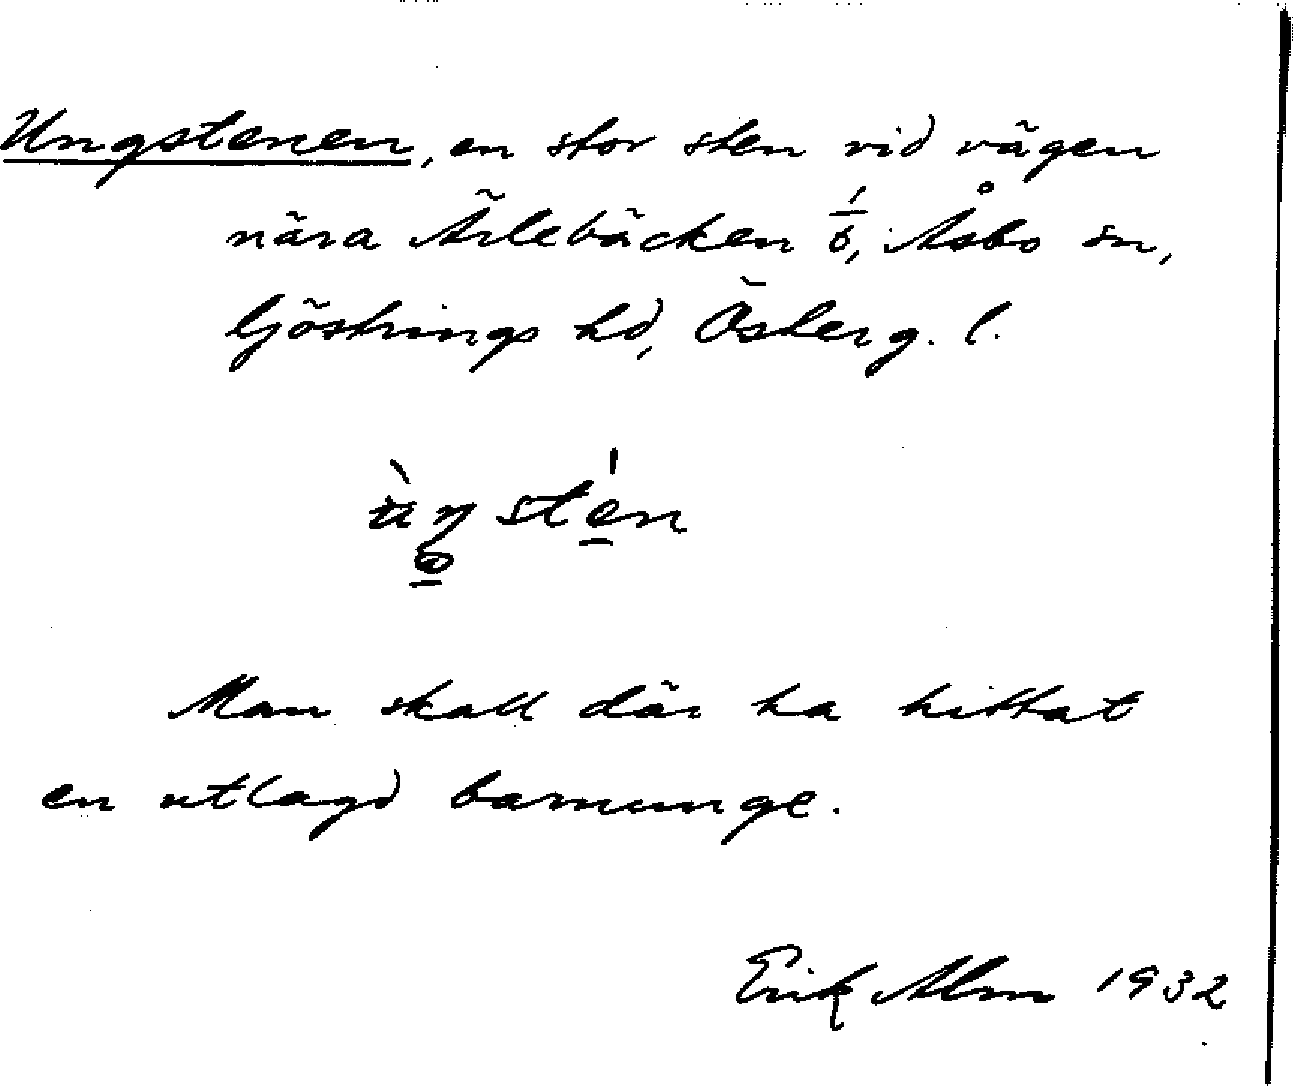 Ungstenen, en stor sten vid vägen
nära Ärlebäcken 1/6, Åsbo sn,
Göstrings hd, Österg. l.
Man skall där ha hittat
en utlagd barnunge.
Erik Alm 1932